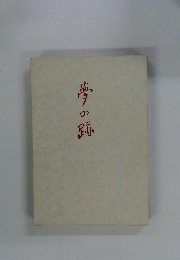 夢の跡